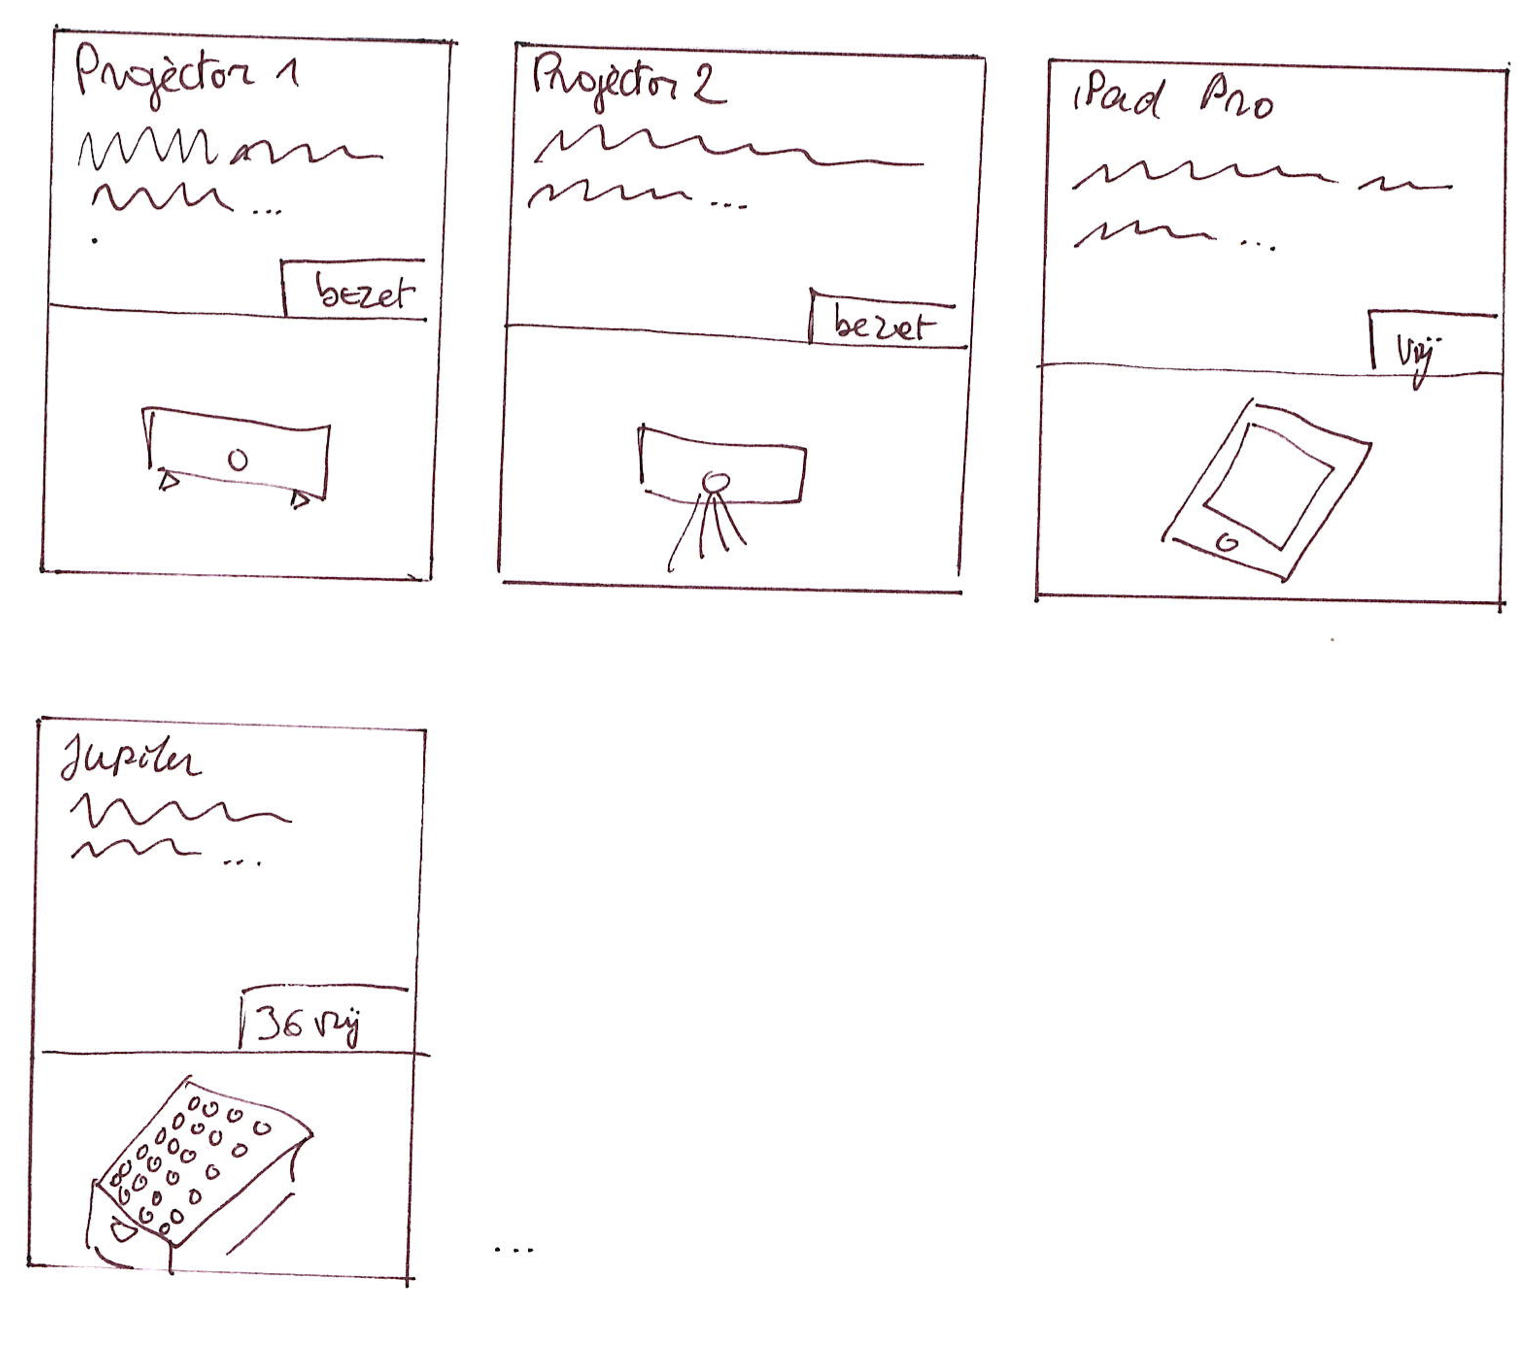 Projector 1
...
bezet
Projector 2
...
bezet
iPad Pro
...
vrij
Jupiler
...
36 vrij
...